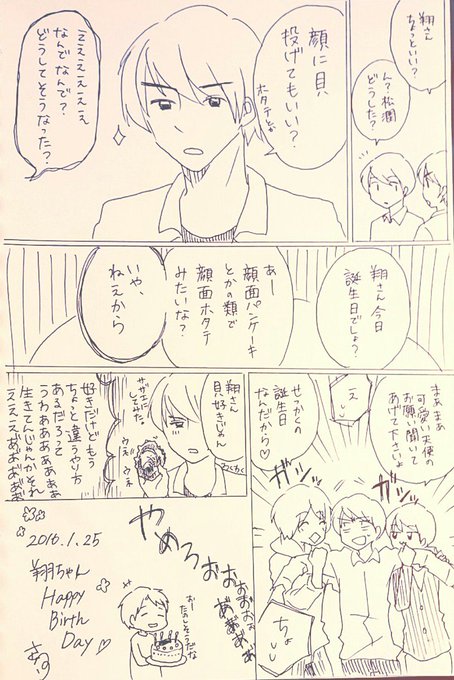 翔さん
ちょっといい？
ん？松潤
どうした？
顔に貝
投げてもいい？
ホタテとか
えええええええ
なんでなんで？
どうしてそうなった？
翔さん今日
誕生日でしょ？
あー
顔面パンケーキ
とかの類で
顔面ホタテ
みたいな？
いや、
ねえから
まぁまぁ
可愛い天使の
お願い聞いて
あげて下さいよ
え
せっかくの
誕生日
なんだから♡
ガシッ
ガシッ
ちょ
翔さん
貝好きじゃん
サザエに
してみた
わくわく
ウネ
ウネ
好きだけどもう
ちょっと違うやり方
あるだろって
うわぁぁぁぁぁぁ
生きてんじゃんかそれ
えええあ゛あ゛あ゛あ゛
やめろおおおおお
あ゛あ゛あ゛あ゛
おー
たのしそうだな
2016.1.25
翔ちゃん
Happy
Birth
Day♡